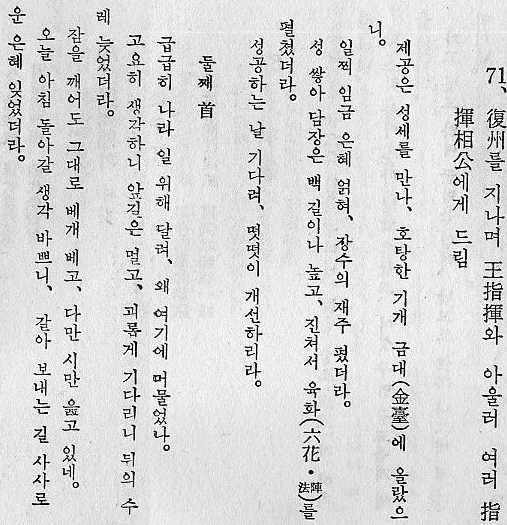 71、復州를 지나며 王指揮와 아울러 여러 指
揮相公에게 드림
제공은 성세를 만나、호탕한 기개 금대(金臺)에 올랐으
니。
일찍 임금 은혜 얽혀、장수의 재주 폈더라。
성 쌓아 담장은 백 길이나 높고、진쳐서 육화(六花・陣法)를
펼쳤더라。
성공하는 날 기다려、떳떳이 개선하리라。
둘째 首
급급히 나라 일 위해 달려、왜 여기에 머물었나。
고요히 생각하니 앞길은 멀고、괴롭게 기다리니 뒤의 수
레 늦었더라。
잠을 깨어도 그대로 베개 베고、다만 시만 읊고 있네。
오늘 아침 돌아갈 생각 바쁘니、갈아 보내는 길 사사로
운 은혜 잊었더라。